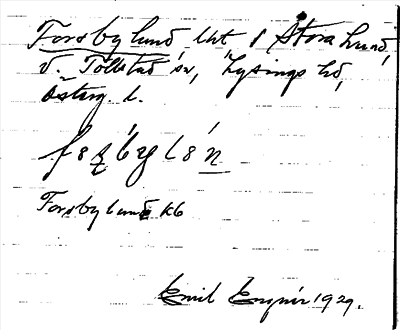 Forsbylund, lht / Stora Lund,
V. Tollstad sn, Lysings hd,
Östergr. l.
Forsbylund kb
Emil Enqvir 1929.